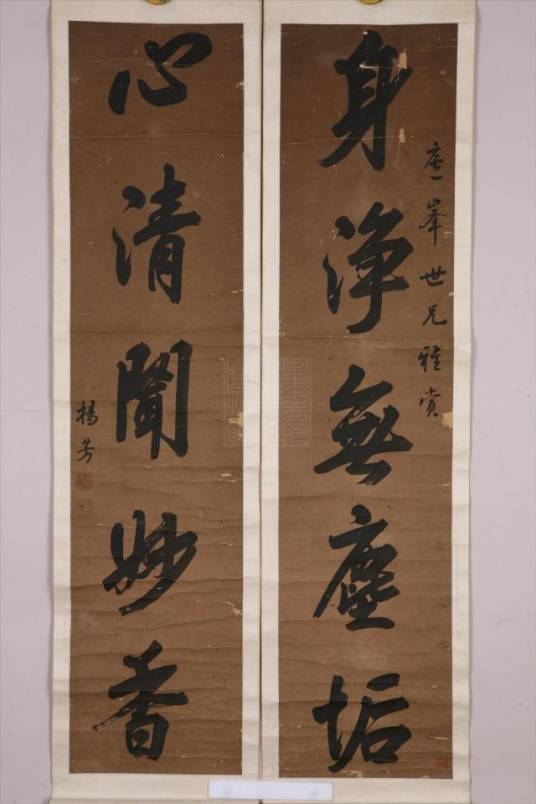 身淨無塵垢
峯世兄雅賞
心清聞妙香
楊芳